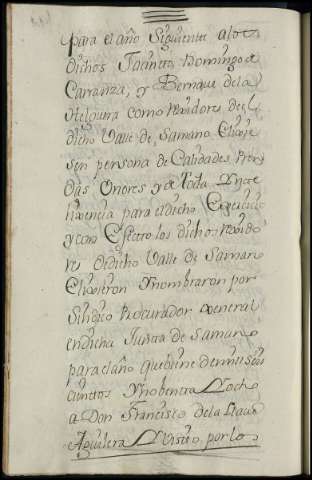 para el año Siguiente a los
dichos Jacinto Domingo de
Carranza, y Bernique de la
Helguera como Rexidores del
dicho Valle de Samano Elixie
sen persona de Calidades Pren
das Onores y de toda Ynte
lixencia para el dicho Exercicio
y con Efectto los dichos Rexido
res de dicho Valle de Saman
Elixieron Y nombraron por
Sindico Procurador xeneral
en dicha Junta de Samano
para el año que biene de mil seis
cientos Y nobenta Y ocho
a Don Francisco de la Llana
Agualera Y Visto por los